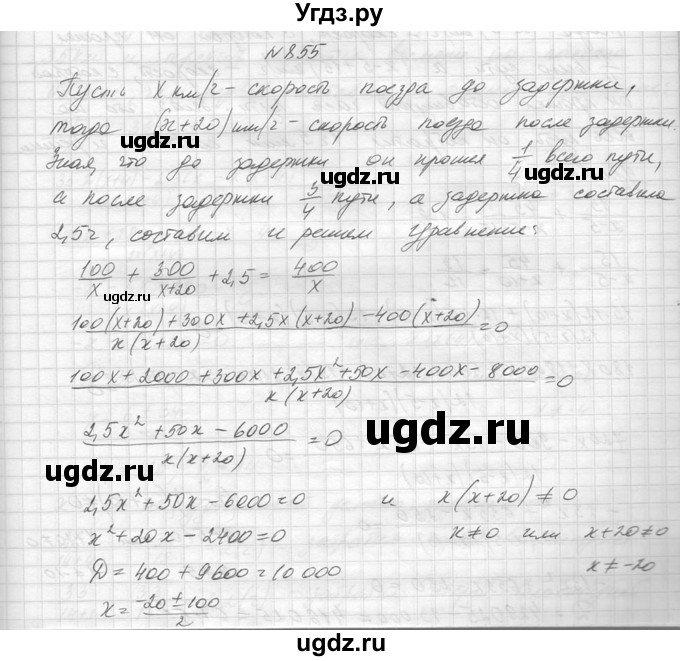 Угдз.ру
N 855
Пусть х км/ч - скорость поезда до задержки,
тогда (х+20) км/ч - скорость поезда после задержки.
Зная, что до задержки он прошел 1/4 всего пути,
а после задержки 3/4 пути, а задержка составила
2,5ч, составим и решим уравнение:
100/x + 300/(x+20) + 2,5 = 400/x
(100(x+20) + 300x + 2,5x(x+20) - 400(x+20))/(x(x+20)) = 0
ugdz.ru
(100x + 2000 + 300x + 2,5x² + 50x - 400x - 8000)/(x(x+20)) = 0
(2,5x² + 50x - 6000)/(x(x+20)) = 0
ugdz.ru
ugdz.ru
2,5x² + 50x - 6000 = 0 и x(x+20) ≠ 0
x² + 20x - 2400 = 0 x ≠ 0 или x+20 ≠ 0
Д = 400 + 9600 = 10 000 x ≠ -20
x = (-20 ± 100)/2
ugdz.ru
ugdz.ru
ugdz.ru
ugdz.ru